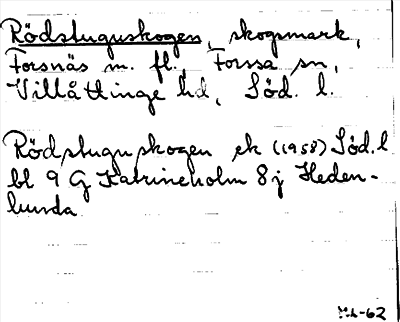 Rödstuguskogen, skogsmark,
Forsnäs m. fl., Forssa sn,
Villåttinge hd, Söd. l.
Rödstuguskogen ek (1958) Söd. l
bl 9 G Katrineholm 8 j Heden-
lunda